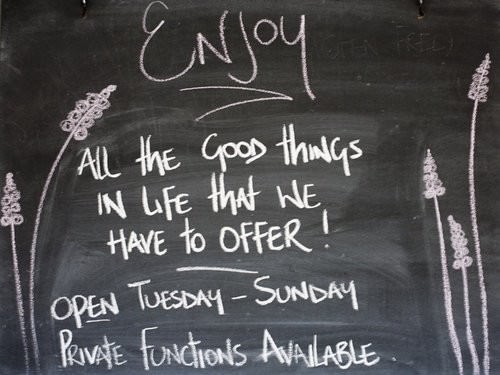 Enjoy
All the Good things
in life that we
have to offer!
Open Tuesday - Sunday
Private Functions Available.